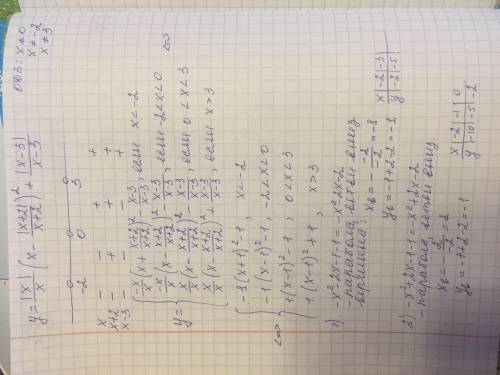 y = |x|/x (x - |x+2|/(x+2))² + |x-3|/(x-3)
ОДЗ: x ≠ 0
x ≠ -2
x ≠ 3
-2 0 3
x - - + +
x+2 - + + +
x-3 - - - +
y =
-x/x (x + (x+2)/(x+2))² - (x-3)/(x-3), если x < -2
-x/x (x - (x+2)/(x+2))² - (x-3)/(x-3), если -2 < x < 0
x/x (x - (x+2)/(x+2))² - (x-3)/(x-3), если 0 < x < 3
x/x (x - (x+2)/(x+2))² + (x-3)/(x-3), если x > 3
⇔
⇔
-1(x+1)² - 1, x < -2
-1(x-1)² - 1, -2 < x < 0
1(x-1)² - 1, 0 < x < 3
1(x-1)² + 1, x > 3
1) -x² - 2x - 1 - 1 = -x² - 2x - 2
- парабола, ветви вниз
вершина:
x | -2 | -3
y | -2 | -5
2) -x² + 2x - 1 - 1 = -x² + 2x - 2
- парабола, ветви вниз
yв = -1 + 2 - 2 = -1
x | -2 | -1 | 0
y | -10 | -5 | -2